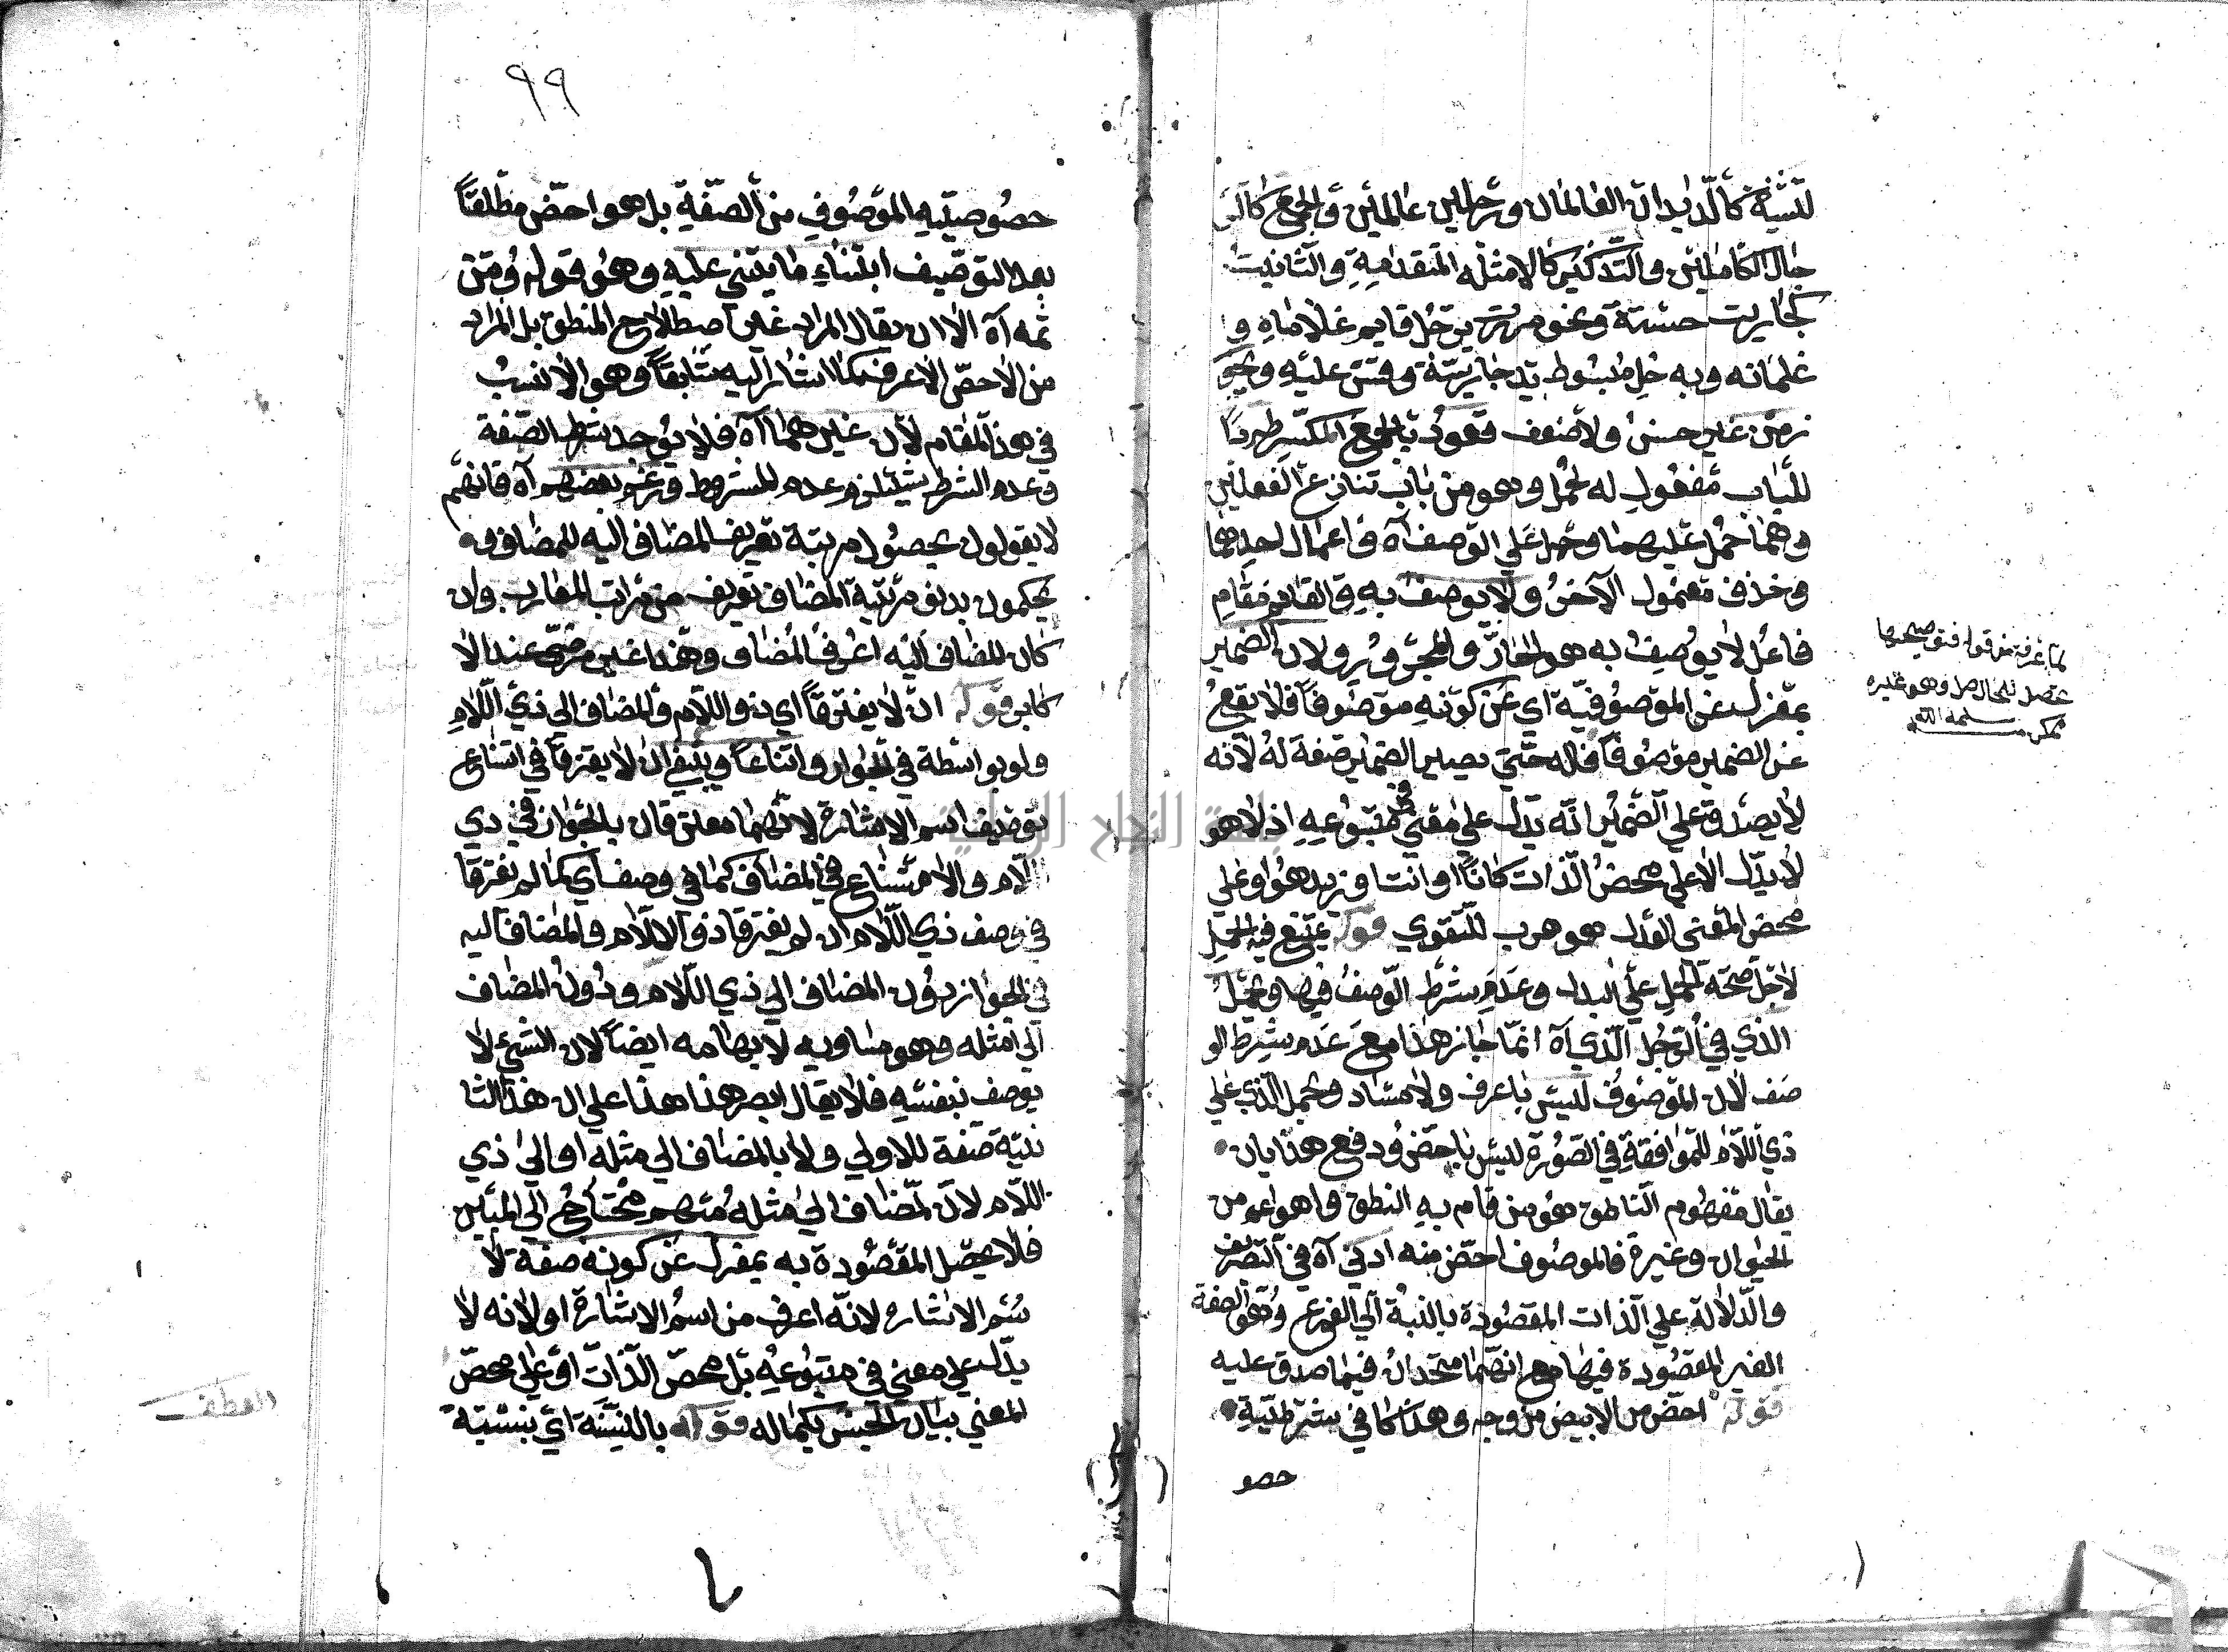 لتثنية كالزيدان العالمان ورجلين عالمين والجمع كالر
جال الكاملين والتذكير كالامثلة المتقدمة والتانيث
كجاريت حسنة ونحو مررت برجل قايم غلاماه و
غلمانه وبه مبسوط يد جاريته وفتى عليه ونحو
غير حسن ولا ضعف قعود بالجمع المكسر طردا
للباب مفعول له لحمل وهو من باب تنازع الفعلين
وهما حمل عليهما وحمل على الوصف اه في اعمال احدهما
وحذف معمول الآخر ولا يوصف به والقايم مقام
فاعل لا يوصف به هو الجار والمجرور ولان الضمير
بمعزل عن الموصوفية اي عن كونه موصوفا فلا يقع
عن الضمير موصوفا قاله حتى يصير الضمير صفة له لانه
لا يصدق على الضمير انه يدل على معنى في متبوعه اذ لا هو
لا يدل الا على محض الذات كانا او انت او زيد هو او على
محض المعنى هو هرب للتقوى قوله يمتنع فيه الحمل
لاجل صحة الحمل على البدل وعدم شرط الوصف فيها ويحمل
الذي في الرجل الذي اه انما جاز هذا مع عدم شرط الو
صف لان الموصوف ليس باعرف ولا مساو ويحمل الذي على
ذي اللام للموافقة في الصورة ليس باخص ودفع هذا بان
يقال مفهوم الناطق هو من قام به النطق وهو اعم من
الحيوان وغيره فالموصوف اخص منه ادنى اه في التعريف
والدلالة على الذات المقصودة بالنسبة الى الفرع وهو الصفة
الغير المقصودة فيها مع انهما متحدان فيما صدق عليه
قوله اخص من الابيض من وجه وهذا كما في شرطية
حصو
٩٩
خصوصيته الموصوف من الصفة بل هو اخص مطلقا
بعد التوصيف ابتناء ما يبتني عليه وهو قوله ومن
ثمه اه الا ان يقال المراد غير اصطلاح المنطق بل المراد
من الاخص الاعرف كما اشار اليه سابقا وهو الانسب
في هذا المقام لان غيرهما اه فلا يوجد شرط الصفة
وعدم الشرط يستلزم عدم المشروط وعند بعضهم اه فانهم
لا يقولون بحصول مرتبة تعريف المضاف اليه للمضاف
يحكمون بدنو مرتبة المضاف تعريف من مراتب المعارف وان
كان المضاف اليه اعرف المضاف وهذا غير مرضي عند الا
كابر قوله ان لا يفترقا اي ذو اللام والمضاف الى ذي اللام
ولو بواسطة في الجواز وامتناعا وينبغي ان لا يفترقا في امتناع
توصيف اسم الاشارة لانهما معلق قال بالجواز في ذي
اللام والامتناع في المضاف كما في وصف اي كما لم يفترقا
في وصف ذي اللام ان لم يفترقا ذو اللام والمضاف اليه
في الجواز دون المضاف الى ذي اللام ودون المضاف
الى مثله وهو مساويه لابهامه ايضا لان الشيء لا
يوصف بنفسه فلا يقال ابصر هذا هذا على ان هذا الثا
نية صفة للاولى ولا بالمضاف الى مثله او الى ذي
اللام لان المضاف الى مثله مبهم محتاج الى المبين
فلا يحصل المقصودة به بمعزل عن كونه صفة لا
سم الاشارة لانه اعرف من اسم الاشارة او لانه لا
يدل على معنى في متبوعه بل محض الذات او على محض
المعنى بيان الجنس بكماله قوله بالنسبة اي بنسبة
العطف